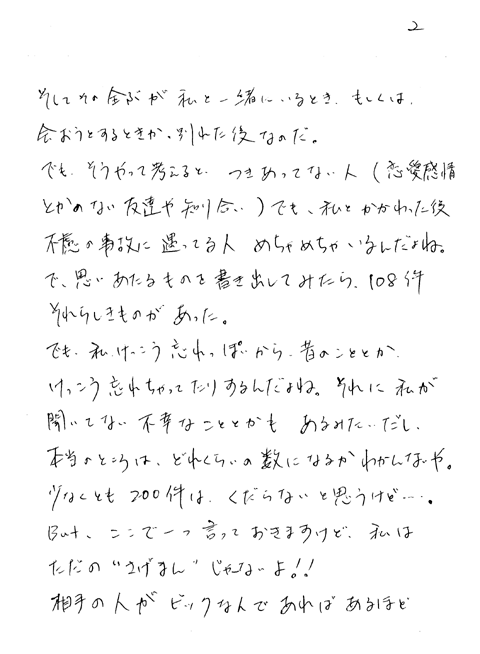 2
そしてその全ぶが私と一緒にいるとき、もしくは、
会おうとするときか、別れた後なのだ。
でも、そうやって考えると、つきあってない人（恋愛感情
とかのない友達や知り合い）でも、私とかかわった後
不慮の事故に遇ってる人 めちゃめちゃいるんだよね。
で、思いあたるものを書き出してみたら、108件
それらしきものがあった。
でも、私、けっこう忘れっぽいから、昔のこととか、
けっこう忘れちゃってたりするんだよね。それに私が
聞いてない不幸なこととかも あるみたいだし、
本当のところは、どれくらいの数になるかわかんないや。
少なくとも 200件は、くだらないと思うけど…。
But、ここで一つ言っておきますけど、私は
ただの"さげまん"じゃないよ!!
相手の人がビックなんであればあるほど